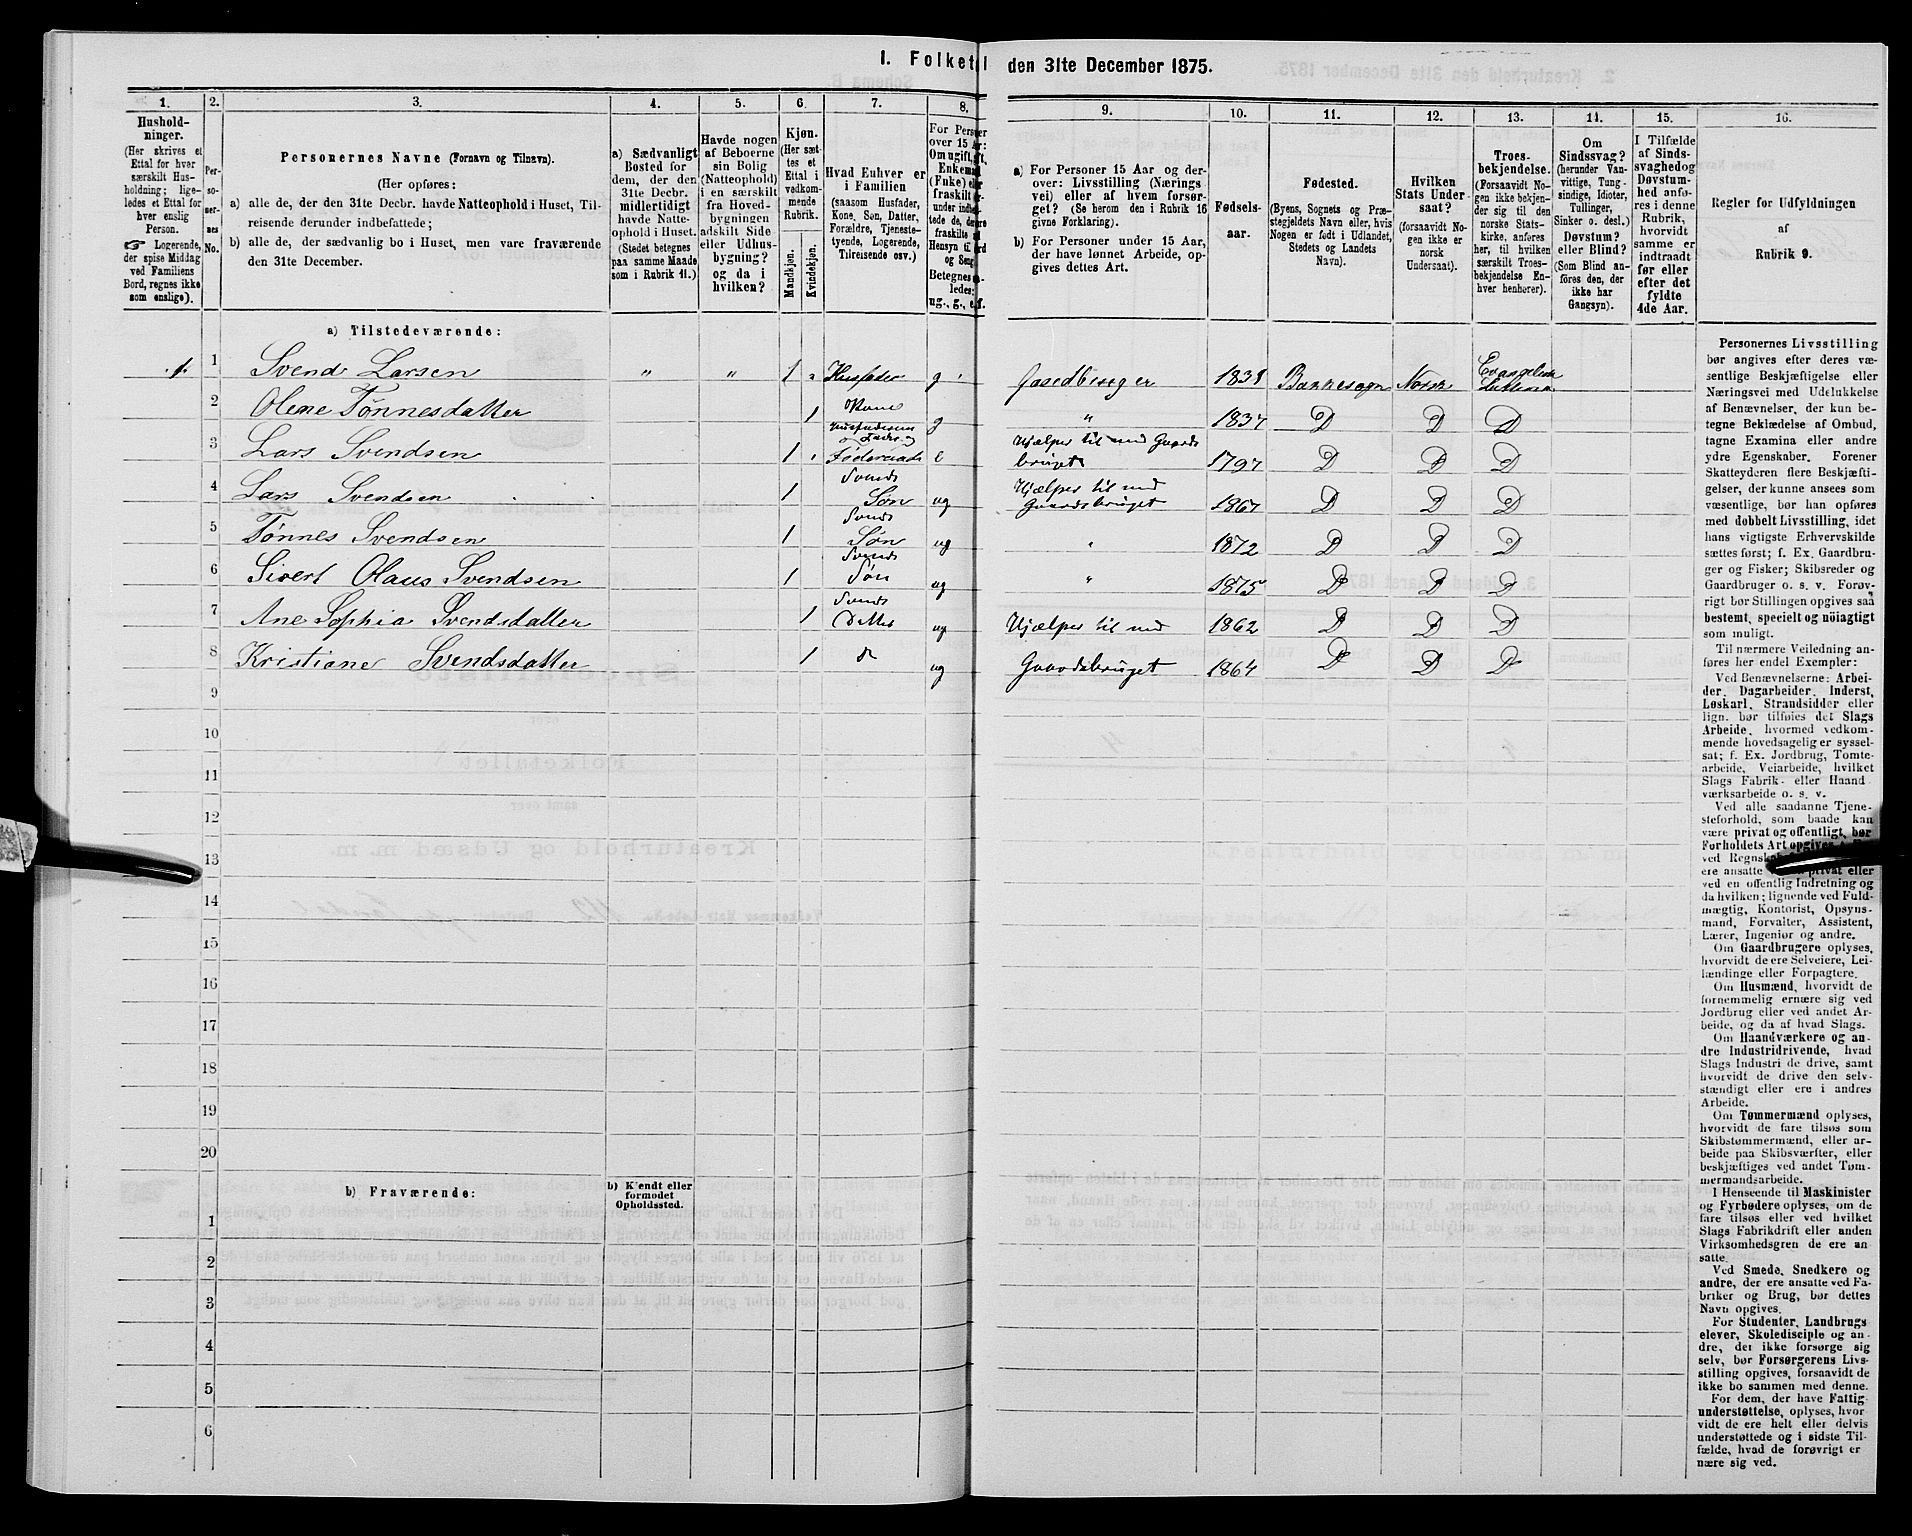 1. Folketal den 31te December 1875.
1. 2. 3. 4. 5. 6. 7. 8. 9. 10. 11. 12. 13. 14. 15. 16.
Hushold-
ninger.
(Her skrives et
Ettal for hver
særskilt Hus-
holdning; lige-
ledes et Ettal for
hver enslig
Person.
Logerende,
der spise Middag
ved Familiens
Bord, regnes ikke
som enslige).
Per-
so-
ner-
nes
No.
Personernes Navne (Fornavn og Tilnavn).
(Her opføres:
a) alle de, der den 31te Decbr. havde Natteophold i Huset, Til-
reisende derunder indbefattede;
b) alle de, der sædvanlig bo i Huset, men vare fraværende
den 31te December.
a) Sædvanligt
Bosted for
dem, der den
31te Decbr.
midlertidigt
havde Natte-
ophold i Huset.
(Stedet betegnes
paa samme Maade
som i Rubrik 11.)
Havde nogen
af Beboerne
sin Bolig
(Natteophold)
i en særskilt
fra Hoved-
bygningen
adskilt Side
eller Udhus-
bygning?
og da i
hvilken?
Kjøn.
(Her sæt-
tes et
Ettal i
vedkom-
mende
Rubrik.
Mandkjøn.
Kvindekjøn.
Hvad Enhver er
i Familien
(saasom Husfader,
Kone, Søn, Datter,
Forældre, Tjeneste-
tyende, Logerende,
Tilreisende osv.)
For Perso
over 15 A
Om ugift,
Enkema
(Enke) el
fraskilt
Betegnes
ledes:
ug., g., e. f.
a) For Personer 15 Aar og der-
over: Livsstilling (Nærings-
vei) eller af hvem forsør-
get? (Se herom den i Rubrik 16
givne Forklaring).
b) For Personer under 15 Aar,
der have lønnet Arbeide, op-
gives dettes Art.
Fødsels-
aar.
Fødested.
(Byens, Sognets og Præ-
stegjeldets Navn eller, hvis
Nogen er født i Udlandet,
Stedets og Landets
Navn).
Hvilken
Stats Under
saat?
(forsaavidt No-
gen ikke er
norsk
Undersaat).
Troes-
bekjendelse.
(Forsaavidt No-
gen ikke bekjen-
der sig til den
norske Stats-
kirke, anføres
her, til hvilken
særskilt Troes-
bekjendelse En-
hver henhører).
Om
Sindssvag?
(herunder Van-
vittige, Tung-
sindige, Idioter,
Tullinger,
Sinker o. desl.)
Døvstum?
eller Blind?
(Som Blind an-
føres den, der
ikke har
Gangsyn).
I Tilfælde
af Sinds-
svaghed og
Døvstum-
hed anfø-
res i denne
Rubrik,
hvorvidt
samme er
indtraadt
før eller
efter det
fyldte
4de Aar.
Regler for Udfyldningen
af
Rubrik 9.
a) Tilstedeværende:
1. 1 Svend Larsen " " 1 " Husfader g Gaardbruger 1838 Bakkesogn Norsk Evangelisk Luthersk
2 Olene Tønnesdatter 1 Kone g " 1837 D D D
3 Lars Svendsen 1 " Husfaderens Fader Føderaads e Hjælper til med Gaards bruget 1797 D D D
4 Lars Svendsen 1 Svends Søn ug Hjælper til med Gaardsbruget 1867 D D D
5 Tønnes Svendsen 1 Svends Søn ug " 1872 D D D
6 Sivert Olaus Svendsen 1 Svends Søn ug " 1875 D D D
7 Ane Sophia Svendsdatter 1 Svends Datter ug Hjælper til med 1862 D D D
8 Kristiane Svendsdatter 1 D ug Gaardsbruget 1864 D D D
9
10
11
12
13
14
15
16
17
18
19
20
b) Fraværende:
b) Kjendt eller
formodet
Opholdssted.
1
2
3
4
5
6
Personernes Livsstilling
bør angives efter deres væ-
sentlige Beskjæftigelse eller
Næringsvei med Udelukkelse
af Benævnelser, der kun be-
tegne Beklædelse af Ombud,
tagne Examina eller andre
ydre Egenskaber. Forener
Skatteyderen flere Beskjæfti-
gelser, der kunne ansees som
væsentlige, bør han opføres
med dobbelt Livsstilling, idet
hans vigtigste Erhvervskilde
sættes først; f. Ex. Gaardbru-
ger og Fisker; Skibsreder og
Gaardbruger o. s. v. Forøv-
rigt bør Stillingen opgives saa
bestemt, specielt og nöiagtigt
som muligt.
Til nærmere Veiledning an-
føres her endel Exempler:
Ved Benævnelserne: Arbei-
der, Dagarbeider, Inderst,
Løskarl, Strandsidder eller
lign. bør tilføies det Slags
Arbeide, hvormed vedkom-
mende hovedsagelig er syssel-
sat; f. Ex. Jordbrug, Tomte-
arbeide, Veiarbeide, hvilket
Slags Fabrik- eller Haand
værksarbeide o. s. v.
Ved alle saadanne Tjene-
steforhold, som baade kan
være privat og offentligt, bør
Forholdets Art opgives,
ved Regnsk
ere ansatte privat eller
ved en offentlig Indretning og
da hvilken; lignende ved Fuld-
mægtig, Kontorist, Opsyns-
mand, Forvalter, Assistent,
Lærer, Ingeniør og andre.
Om Gaardbrugere oplyses,
hvorvidt de ere Selveiere, Lei-
lændinge eller Forpagtere.
Om Husmænd, hvorvidt de
fornemmelig ernære sig ved
Jordbrug eller ved andet Ar-
beide, og da af hvad Slags.
Om Haandværkere og an-
dre Industridrivende, hvad
Slags Industri de drive, samt
hvorvidt de drive den selv-
stændigt eller ere i andres
Arbeide.
Om Tømmermænd oplyses,
hvorvidt de fare tilsøs som
Skibstømmermænd, eller ar-
beide paa Skibsværfter, eller
beskjæftiges ved andet Tøm-
mermandsarbeide.
I Henseende til Maskinister
og Fyrbødere oplyses, om de
fare tilsøs eller ved hvilket
Slags Fabrikdrift eller anden
Virksomhedsgren de ere an
satte.
Ved Smede, Snedkere og
andre, der ere ansatte ved Fa-
briker og Brug, bør dettes
Navn opgives.
For Studenter, Landbrugs
elever, Skoledisciple og an-
dre, der ikke forsørge sig
selv, bør Forsørgerens Livs-
stilling opgives, forsaavidt de
ikke bo sammen med denne.
For dem, der have Fattig
understøttelse, oplyses, hvor-
vidt de ere helt eller delvis
understøttede og i sidste Til-
fælde, hvad de forøvrigt er
nære sig ved.